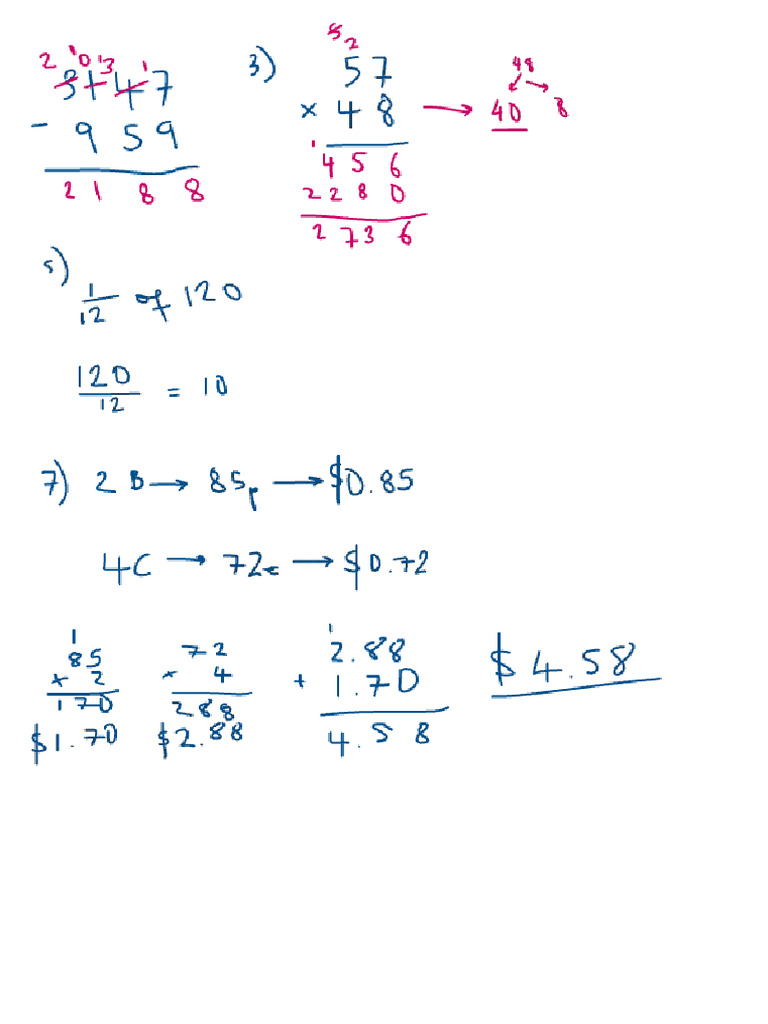 2 1 0 1 3 1
3147
- 959
2188
3)
5 2
57
× 48 → 40 8
48
1
456
2280
2736
5)
1/12 of 120
120/12 = 10
7) 2 B → 85p → $0.85
4C → 72c → $0.72
1
85
× 2
170
$1.70
72
× 4
288
$2.88
1
2.88
+ 1.70
4.58
$4.58